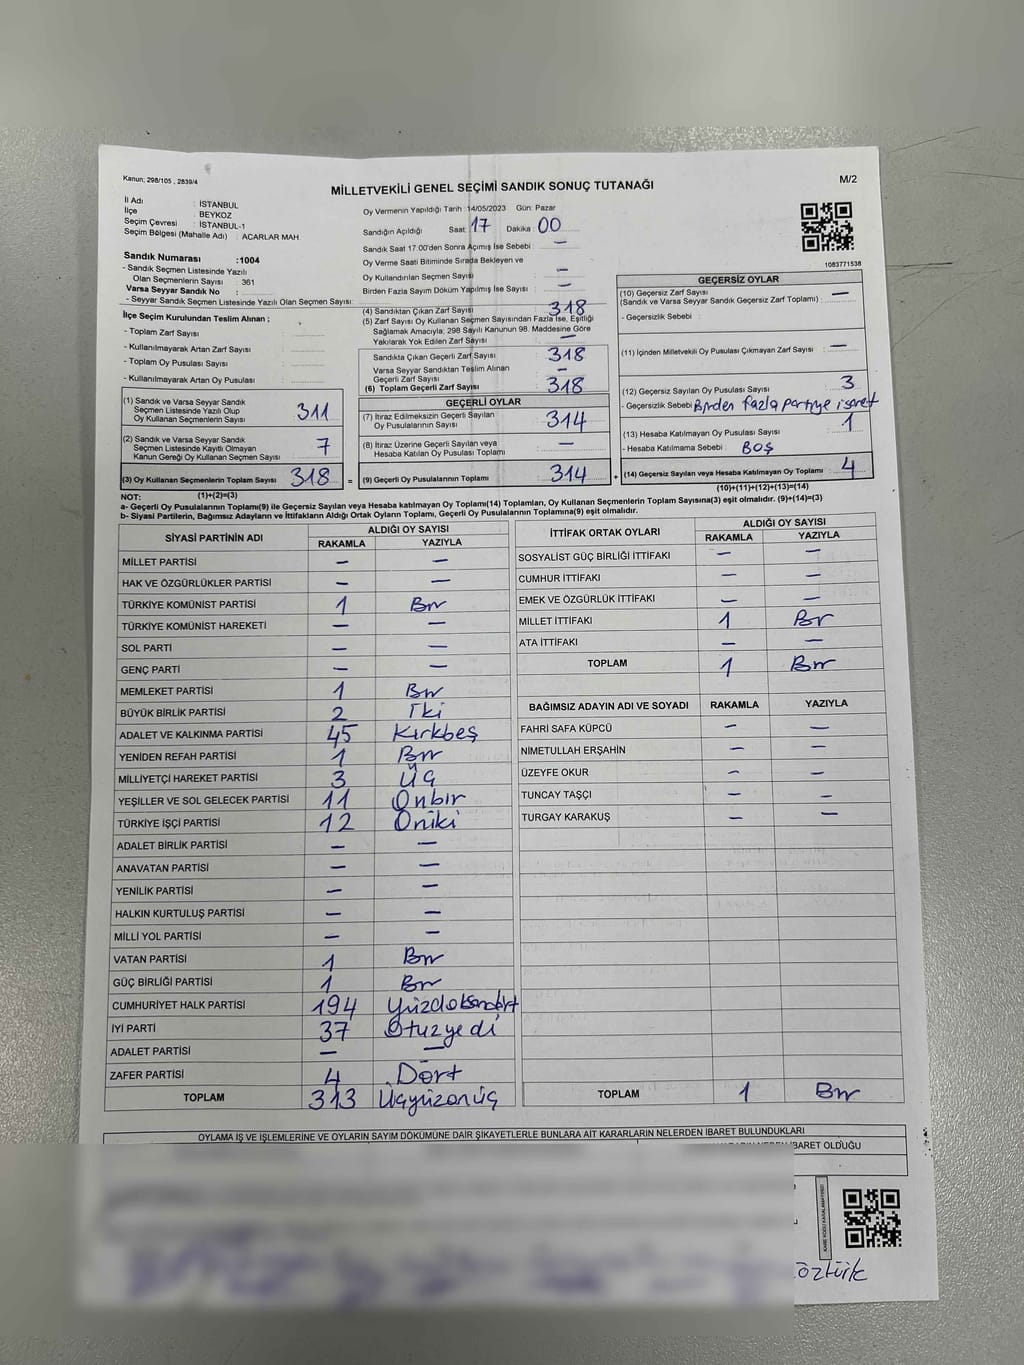 Kanun; 298/105 , 2839/4
MİLLETVEKİLİ GENEL SEÇİMİ SANDIK SONUÇ TUTANAĞI
M/2
İl Adı : İSTANBUL
İlçe : BEYKOZ
Seçim Çevresi : İSTANBUL-1
Seçim Bölgesi (Mahalle Adı) : ACARLAR MAH.
Sandık Numarası :1004
- Sandık Seçmen Listesinde Yazılı
Olan Seçmenlerin Sayısı 361
Varsa Seyyar Sandık No :
- Seyyar Sandık Seçmen Listesinde Yazılı Olan Seçmen Sayısı:
İlçe Seçim Kurulundan Teslim Alınan ;
- Toplam Zarf Sayısı
- Kullanılmayarak Artan Zarf Sayısı
- Toplam Oy Pusulası Sayısı
- Kullanılmayarak Artan Oy Pusulası
(1) Sandık ve Varsa Seyyar Sandık
Seçmen Listesinde Yazılı Olup
Oy Kullanan Seçmenlerin Sayısı 311
(2) Sandık ve Varsa Seyyar Sandık
Seçmen Listesinde Kayıtlı Olmayan
Kanun Gereği Oy Kullanan Seçmen Sayısı 7
(3) Oy Kullanan Seçmenlerin Toplam Sayısı 318 =
Oy Vermenin Yapıldığı Tarih : 14/05/2023 Gün: Pazar
Sandığın Açıldığı Saat : 17 Dakika : 00
Sandık Saat 17:00'den Sonra Açımış İse Sebebi : —
Oy Verme Saati Bitiminde Sırada Bekleyen ve
Oy Kullandırılan Seçmen Sayısı : —
Birden Fazla Sayım Döküm Yapılmış İse Sayısı : —
(4) Sandıktan Çıkan Zarf Sayısı 318
(5) Zarf Sayısı Oy Kullanan Seçmen Sayısından Fazla İse, Eşitliği
Sağlamak Amacıyla; 298 Sayılı Kanunun 98. Maddesine Göre
Yakılarak Yok Edilen Zarf Sayısı —
Sandıkta Çıkan Geçerli Zarf Sayısı 318
Varsa Seyyar Sandıktan Teslim Alınan
Geçerli Zarf Sayısı —
(6) Toplam Geçerli Zarf Sayısı 318
GEÇERLİ OYLAR
(7) İtiraz Edilmeksizin Geçerli Sayılan
Oy Pusulalarının Sayısı 314
(8) İtiraz Üzerine Geçerli Sayılan veya
Hesaba Katılan Oy Pusulası Toplamı —
(9) Geçerli Oy Pusulalarının Toplamı 314 +
1083771538
GEÇERSİZ OYLAR
(10) Geçersiz Zarf Sayısı —
(Sandık ve Varsa Seyyar Sandık Geçersiz Zarf Toplamı)
- Geçersizlik Sebebi :
(11) İçinden Milletvekili Oy Pusulası Çıkmayan Zarf Sayısı —
(12) Geçersiz Sayılan Oy Pusulası Sayısı 3
- Geçersizlik Sebebi Birden fazla partiye işaret
(13) Hesaba Katılmayan Oy Pusulası Sayısı 1
- Hesaba Katılmama Sebebi : BOŞ
(14) Geçersiz Sayılan veya Hesaba Katılmayan Oy Toplamı 4
NOT: (1)+(2)=(3)
(10)+(11)+(12)+(13)=(14)
a- Geçerli Oy Pusulalarının Toplamı(9) ile Geçersiz Sayılan veya Hesaba katılmayan Oy Toplamı(14) Toplamları, Oy Kullanan Seçmenlerin Toplam Sayısına(3) eşit olmalıdır. (9)+(14)=(3)
b- Siyasi Partilerin, Bağımsız Adayların ve İttifakların Aldığı Ortak Oyların Toplamı, Geçerli Oy Pusulalarının Toplamına(9) eşit olmalıdır.
SİYASİ PARTİNİN ADI ALDIĞI OY SAYISI
RAKAMLA YAZIYLA
MİLLET PARTİSİ — —
HAK VE ÖZGÜRLÜKLER PARTİSİ — —
TÜRKİYE KOMÜNİST PARTİSİ 1 Bir
TÜRKİYE KOMÜNİST HAREKETİ — —
SOL PARTİ — —
GENÇ PARTİ — —
MEMLEKET PARTİSİ 1 Bir
BÜYÜK BİRLİK PARTİSİ 2 İki
ADALET VE KALKINMA PARTİSİ 45 Kırkbeş
YENİDEN REFAH PARTİSİ 1 Bir
MİLLİYETÇİ HAREKET PARTİSİ 3 Üç
YEŞİLLER VE SOL GELECEK PARTİSİ 11 Onbir
TÜRKİYE İŞÇİ PARTİSİ 12 Oniki
ADALET BİRLİK PARTİSİ — —
ANAVATAN PARTİSİ — —
YENİLİK PARTİSİ — —
HALKIN KURTULUŞ PARTİSİ — —
MİLLİ YOL PARTİSİ — —
VATAN PARTİSİ 1 Bir
GÜÇ BİRLİĞİ PARTİSİ 1 Bir
CUMHURİYET HALK PARTİSİ 194 Yüzdoksandört
İYİ PARTİ 37 Otuzyedi
ADALET PARTİSİ — —
ZAFER PARTİSİ 4 Dört
TOPLAM 313 Üçyüzonüç
İTTİFAK ORTAK OYLARI ALDIĞI OY SAYISI
RAKAMLA YAZIYLA
SOSYALİST GÜÇ BİRLİĞİ İTTİFAKI — —
CUMHUR İTTİFAKI — —
EMEK VE ÖZGÜRLÜK İTTİFAKI — —
MİLLET İTTİFAKI 1 Bir
ATA İTTİFAKI — —
TOPLAM 1 Bir
BAĞIMSIZ ADAYIN ADI VE SOYADI RAKAMLA YAZIYLA
FAHRİ SAFA KÜPCÜ — —
NİMETULLAH ERŞAHİN — —
ÜZEYFE OKUR — —
TUNCAY TAŞÇI — —
TURGAY KARAKUŞ — —
TOPLAM 1 Bir
OYLAMA İŞ VE İŞLEMLERİNE VE OYLARIN SAYIM DÖKÜMÜNE DAİR ŞİKAYETLERLE BUNLARA AİT KARARLARIN NELERDEN İBARET BULUNDUKLARI
İBARET OLDUĞU
öztürk